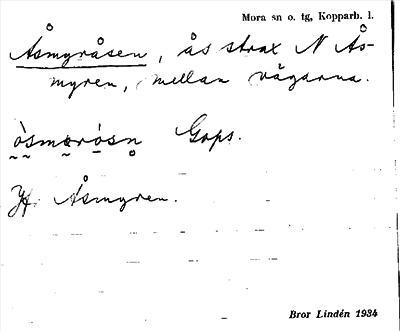 Mora sn o. tg, Kopparb. l.
Åsmyråsen, ås strax N Ås-
myren, mellan vägarna.
òsmœrósn Gops.
Jf. Åsmyren.
Bror Lindén 1934